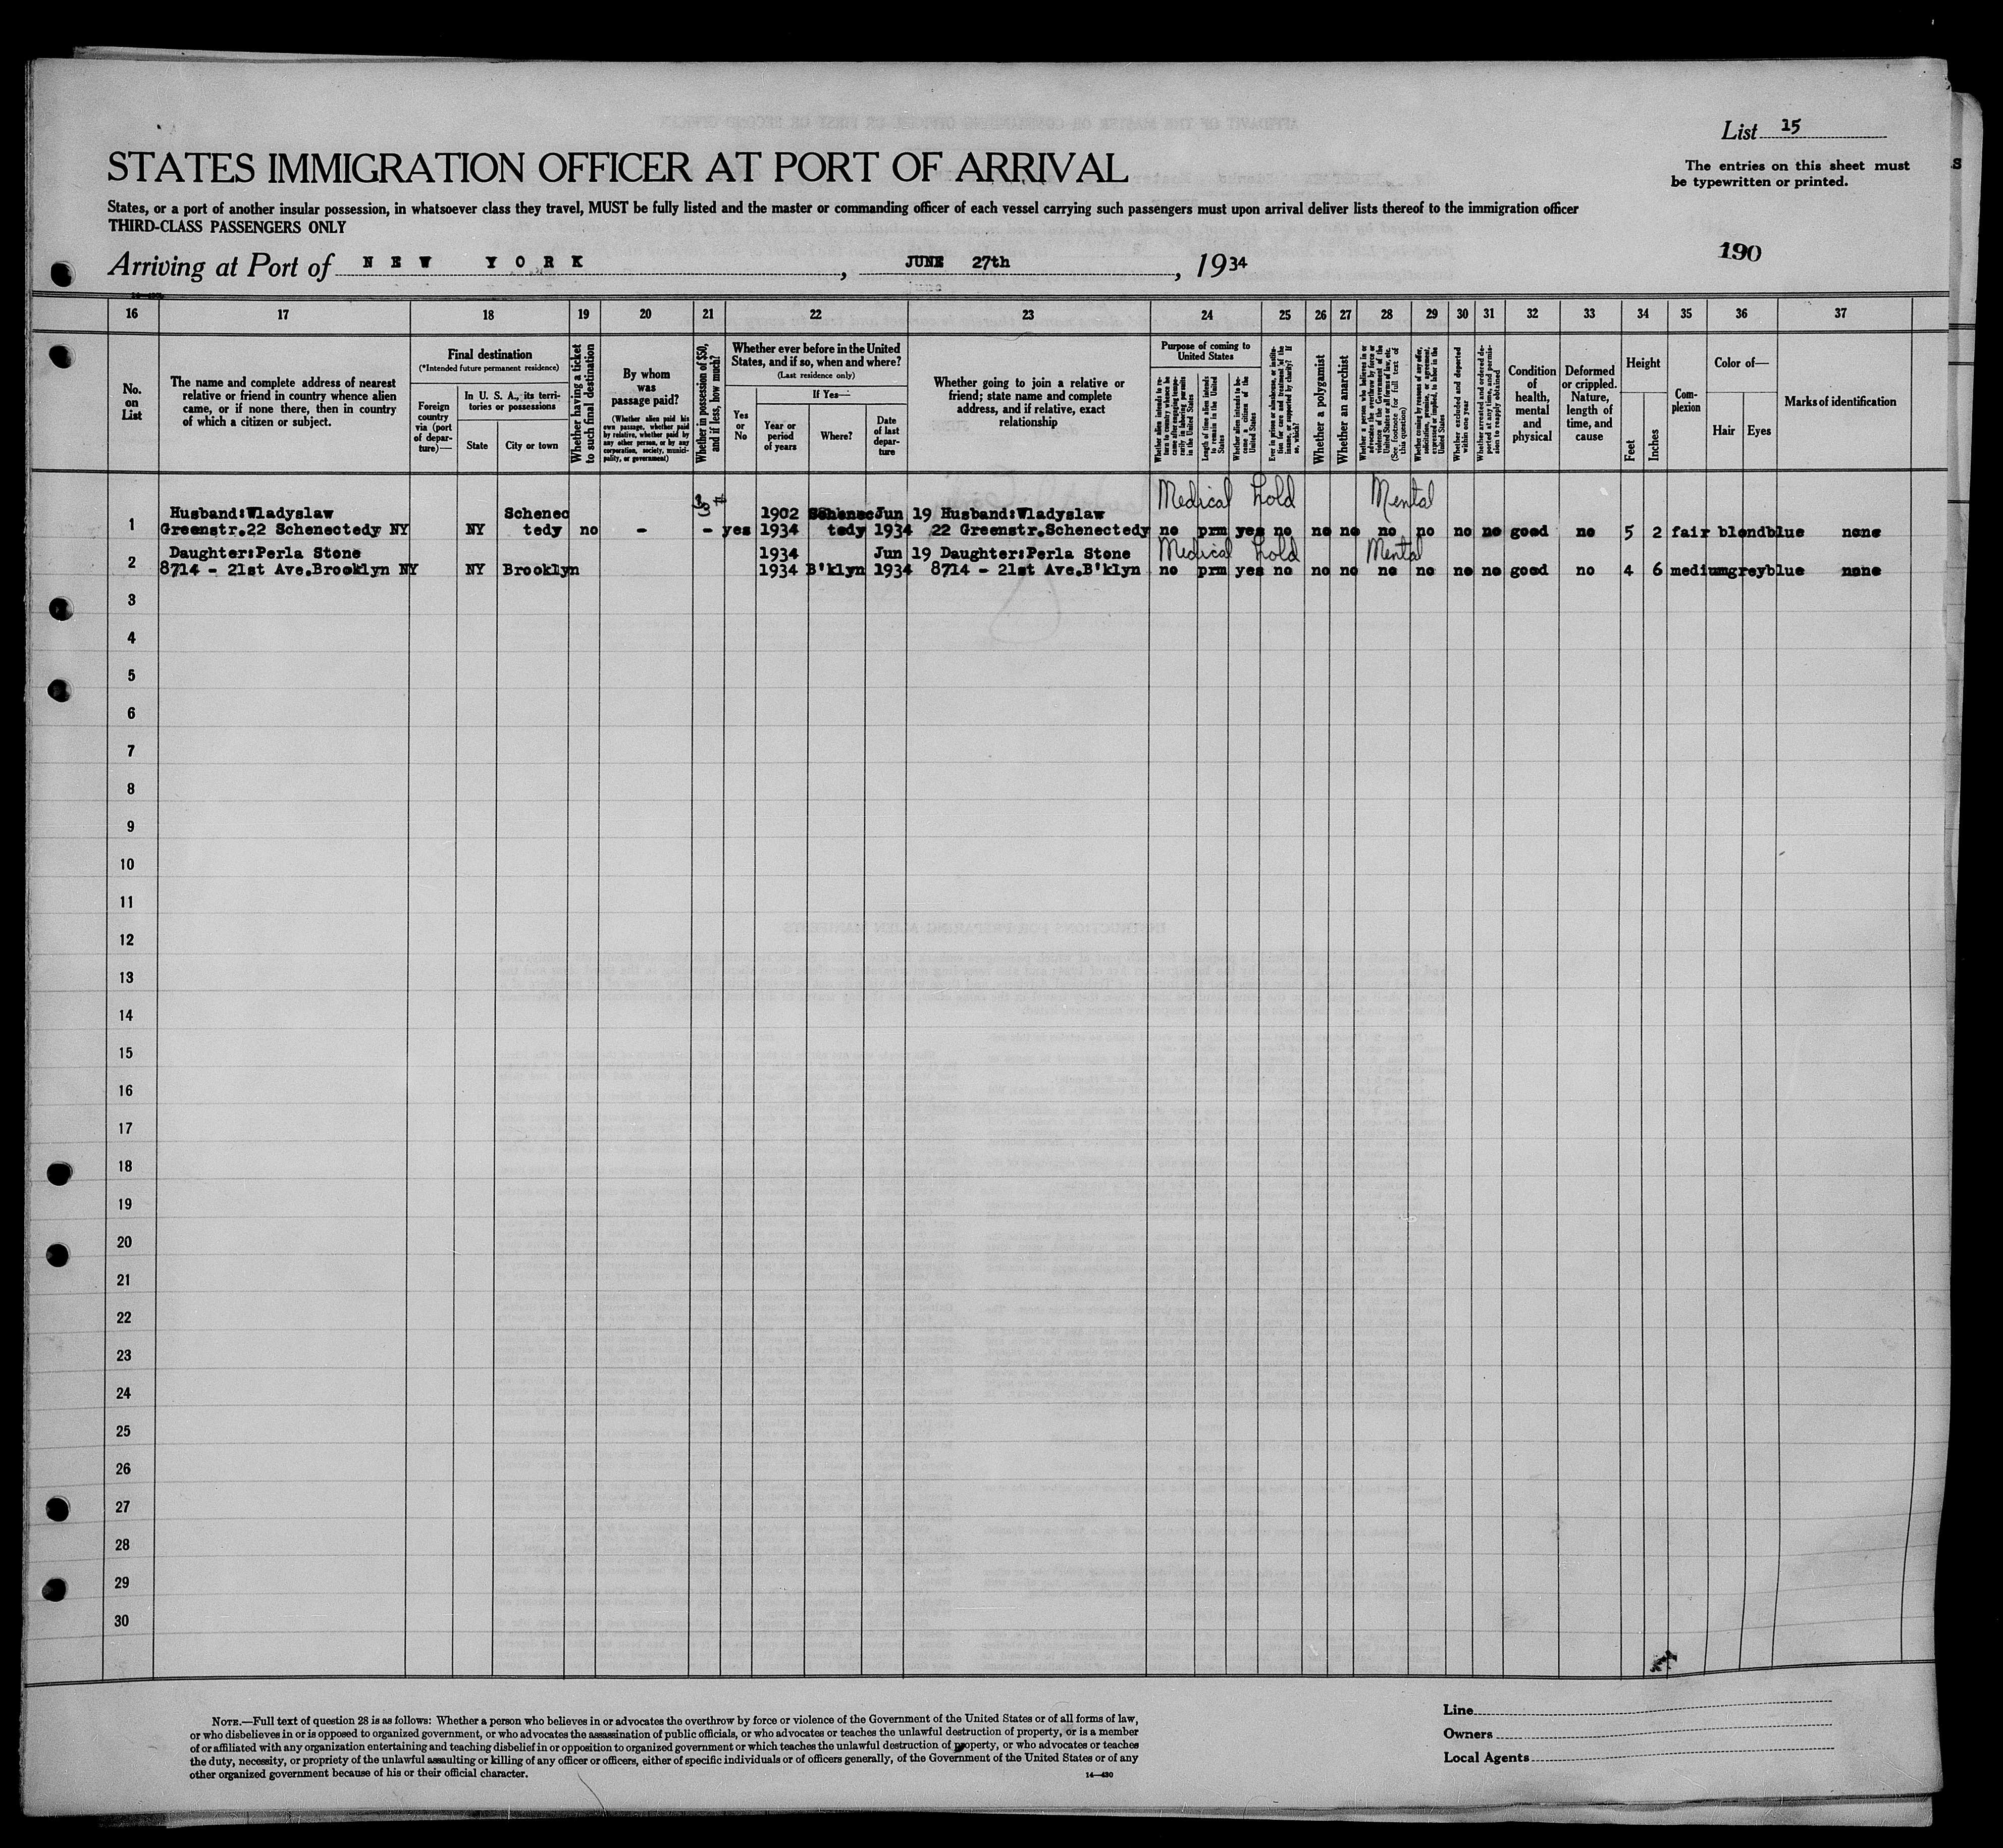 List 15
STATES IMMIGRATION OFFICER AT PORT OF ARRIVAL
The entries on this sheet must
be typewritten or printed.
States, or a port of another insular possession, in whatsoever class they travel, MUST be fully listed and the master or commanding officer of each vessel carrying such passengers must upon arrival deliver lists thereof to the immigration officer
THIRD-CLASS PASSENGERS ONLY
190
Arriving at Port of NEW YORK, JUNE 27th, 1934
16 17 18 19 20 21 22 23 24 25 26 27 28 29 30 31 32 33 34 35 36 37
No. on List
The name and complete address of nearest
relative or friend in country whence alien
came, or if none there, then in country
of which a citizen or subject.
Final destination
(*Intended future permanent residence)
Foreign country via (port of departure)—
In U. S. A., its territories or possessions
State
City or town
Whether having a ticket to such final destination
By whom was passage paid?
(Whether alien paid his own passage, whether paid by relative, whether paid by any other person, or by any corporation, society, municipality, or government)
Whether in possession of $50, and if less, how much?
Whether ever before in the United States, and if so, when and where?
(Last residence only)
Yes or No
If Yes—
Year or period of years
Where?
Date of last departure
Whether going to join a relative or
friend; state name and complete
address, and if relative, exact
relationship
Purpose of coming to United States
Whether alien intends to return to country whence he came after engaging temporarily in laboring pursuits in the United States
Length of time alien intends to remain in the United States
Whether alien intends to become a citizen of the United States
Ever in prison or almshouse, or institution for care and treatment of the insane, or supported by charity? If so, which?
Whether a polygamist
Whether an anarchist
Whether a person who believes in or advocates the overthrow by force or violence of the Government of the United States or all forms of law, etc. (See footnote for full text of this question)
Whether coming by reason of any offer, solicitation, promise, or agreement, expressed or implied, to labor in the United States
Whether excluded and deported within one year
Whether arrested and ordered deported at any time, and permission to reapply obtained
Condition of health, mental and physical
Deformed or crippled. Nature, length of time, and cause
Height
Feet
Inches
Complexion
Color of—
Hair
Eyes
Marks of identification
Medical hold Mental
Husband:Wladyslaw Schenec 1902 Schenec Jun 19 Husband:Wladyslaw
1 Greenstr.22 Schenectedy NY NY tedy no - - yes 1934 tedy 1934 22 Greenstr.Schenectedy no prm yes no no no no no no no good no 5 2 fair blond blue none
Medical hold Mental
Daughter:Perla Stone 1934 Jun 19 Daughter:Perla Stone
2 8714 - 21st Ave.Brooklyn NY NY Brooklyn 1934 B'klyn 1934 8714 - 21st Ave.B'klyn no prm yes no no no no no no no good no 4 6 medium grey blue none
3
4
5
6
7
8
9
10
11
12
13
14
15
16
17
18
19
20
21
22
23
24
25
26
27
28
29
30
NOTE.—Full text of question 28 is as follows: Whether a person who believes in or advocates the overthrow by force or violence of the Government of the United States or of all forms of law,
or who disbelieves in or is opposed to organized government, or who advocates the assassination of public officials, or who advocates or teaches the unlawful destruction of property, or is a member
of or affiliated with any organization entertaining and teaching disbelief in or opposition to organized government or which teaches the unlawful destruction of property, or who advocates or teaches
the duty, necessity, or propriety of the unlawful assaulting or killing of any officer or officers, either of specific individuals or of officers generally, of the Government of the United States or of any
other organized government because of his or their official character.
14—430
Line
Owners
Local Agents